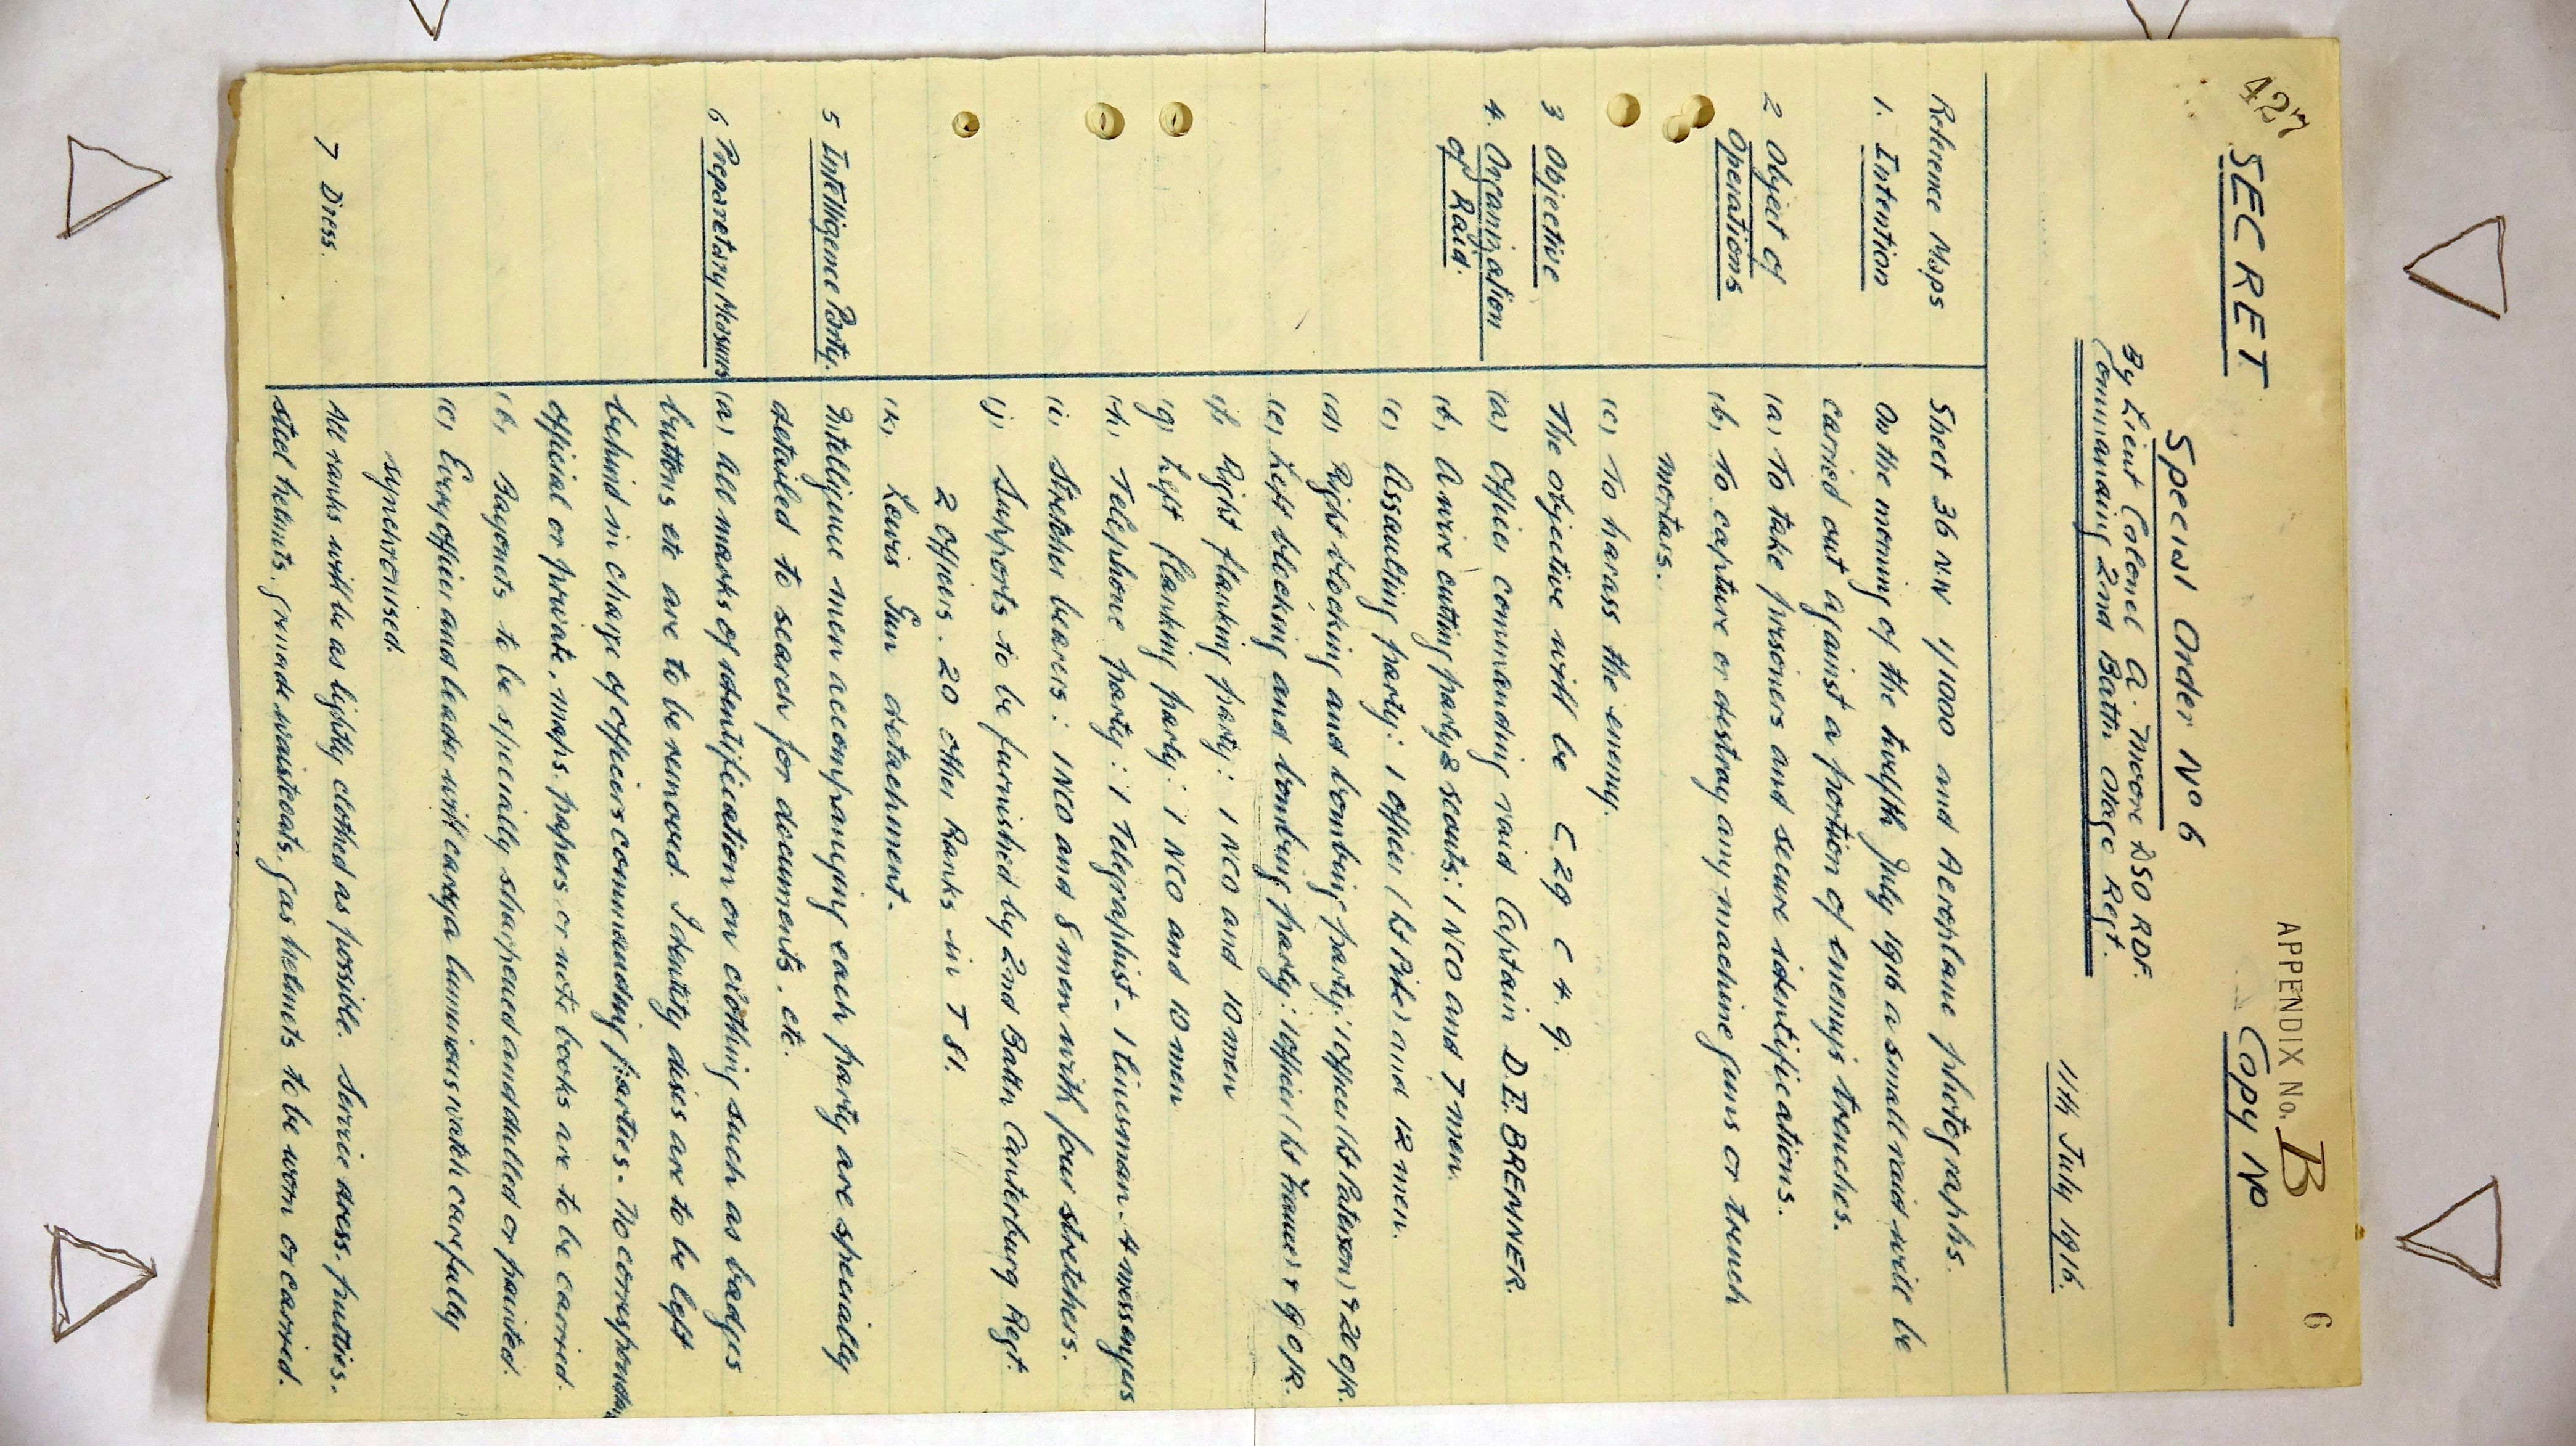 427
APPENDIX No. B
6
SECRET
Copy No
Special Order No 6
By Lieut Colonel A. Moore DSO RDF.
Commanding 2nd Battn Otago Regt.
11th July 1916.
Reference Maps Sheet 36 N.W 1/1000 and Aeroplane photographs.
1. Intention On the morning of the twelfth July 1916 a small raid will be
carried out against a portion of enemys trenches.
2 Object of (a) To take prisoners and secure identifications.
Operations (b) To capture or destroy any machine guns or trench
mortars.
(c) To harass the enemy.
3 Objective The objective will be C 29 C 4. 9.
4. Organization (a) Officer commanding raid Captain D.E. BREMNER.
of Raid. (b) A wire cutting party & scouts: 1 NCO and 7 men.
(c) Assaulting party: 1 officer (Lt Pike) and 12 men.
(d) Right blocking and bombing party: 1 officer (Lt Paterson) & 20 O/R.
(e) Left blocking and bombing party: 1 officer (Lt ) & 9 O/R.
(f) Right flanking party: 1 NCO and 10 men
(g) Left flanking party: 1 NCO and 10 men
(h) Telephone party: 1 Telegraphist - 1 linesman. 4 messengers
(i) Stretcher bearers: 1 NCO and 8 men with four stretchers.
(j) Supports to be furnished by 2nd Battn Canterbury Regt.
2 Officers. 20 other Ranks in T 81.
(k) Lewis Gun detachment.
5 Intelligence Party. Intelligence men accompanying each party are specially
detailed to search for documents. etc.
6 Preparetary Measures (a) All marks of identification on clothing such as badges
buttons etc are to be removed. Identity discs are to be left
behind in charge of officers commanding parties. No correspondence
official or private, maps. papers or note books are to be carried.
(b) Bayonets to be specially sharpened and dulled or painted.
(c) Every officer and leader will carry a luminous watch carefully
synchronised.
7 Dress. All ranks will be as lightly clothed as possible. Service dress. putties.
steel helmets. grenade waistcoats. gas helmets to be worn or carried.